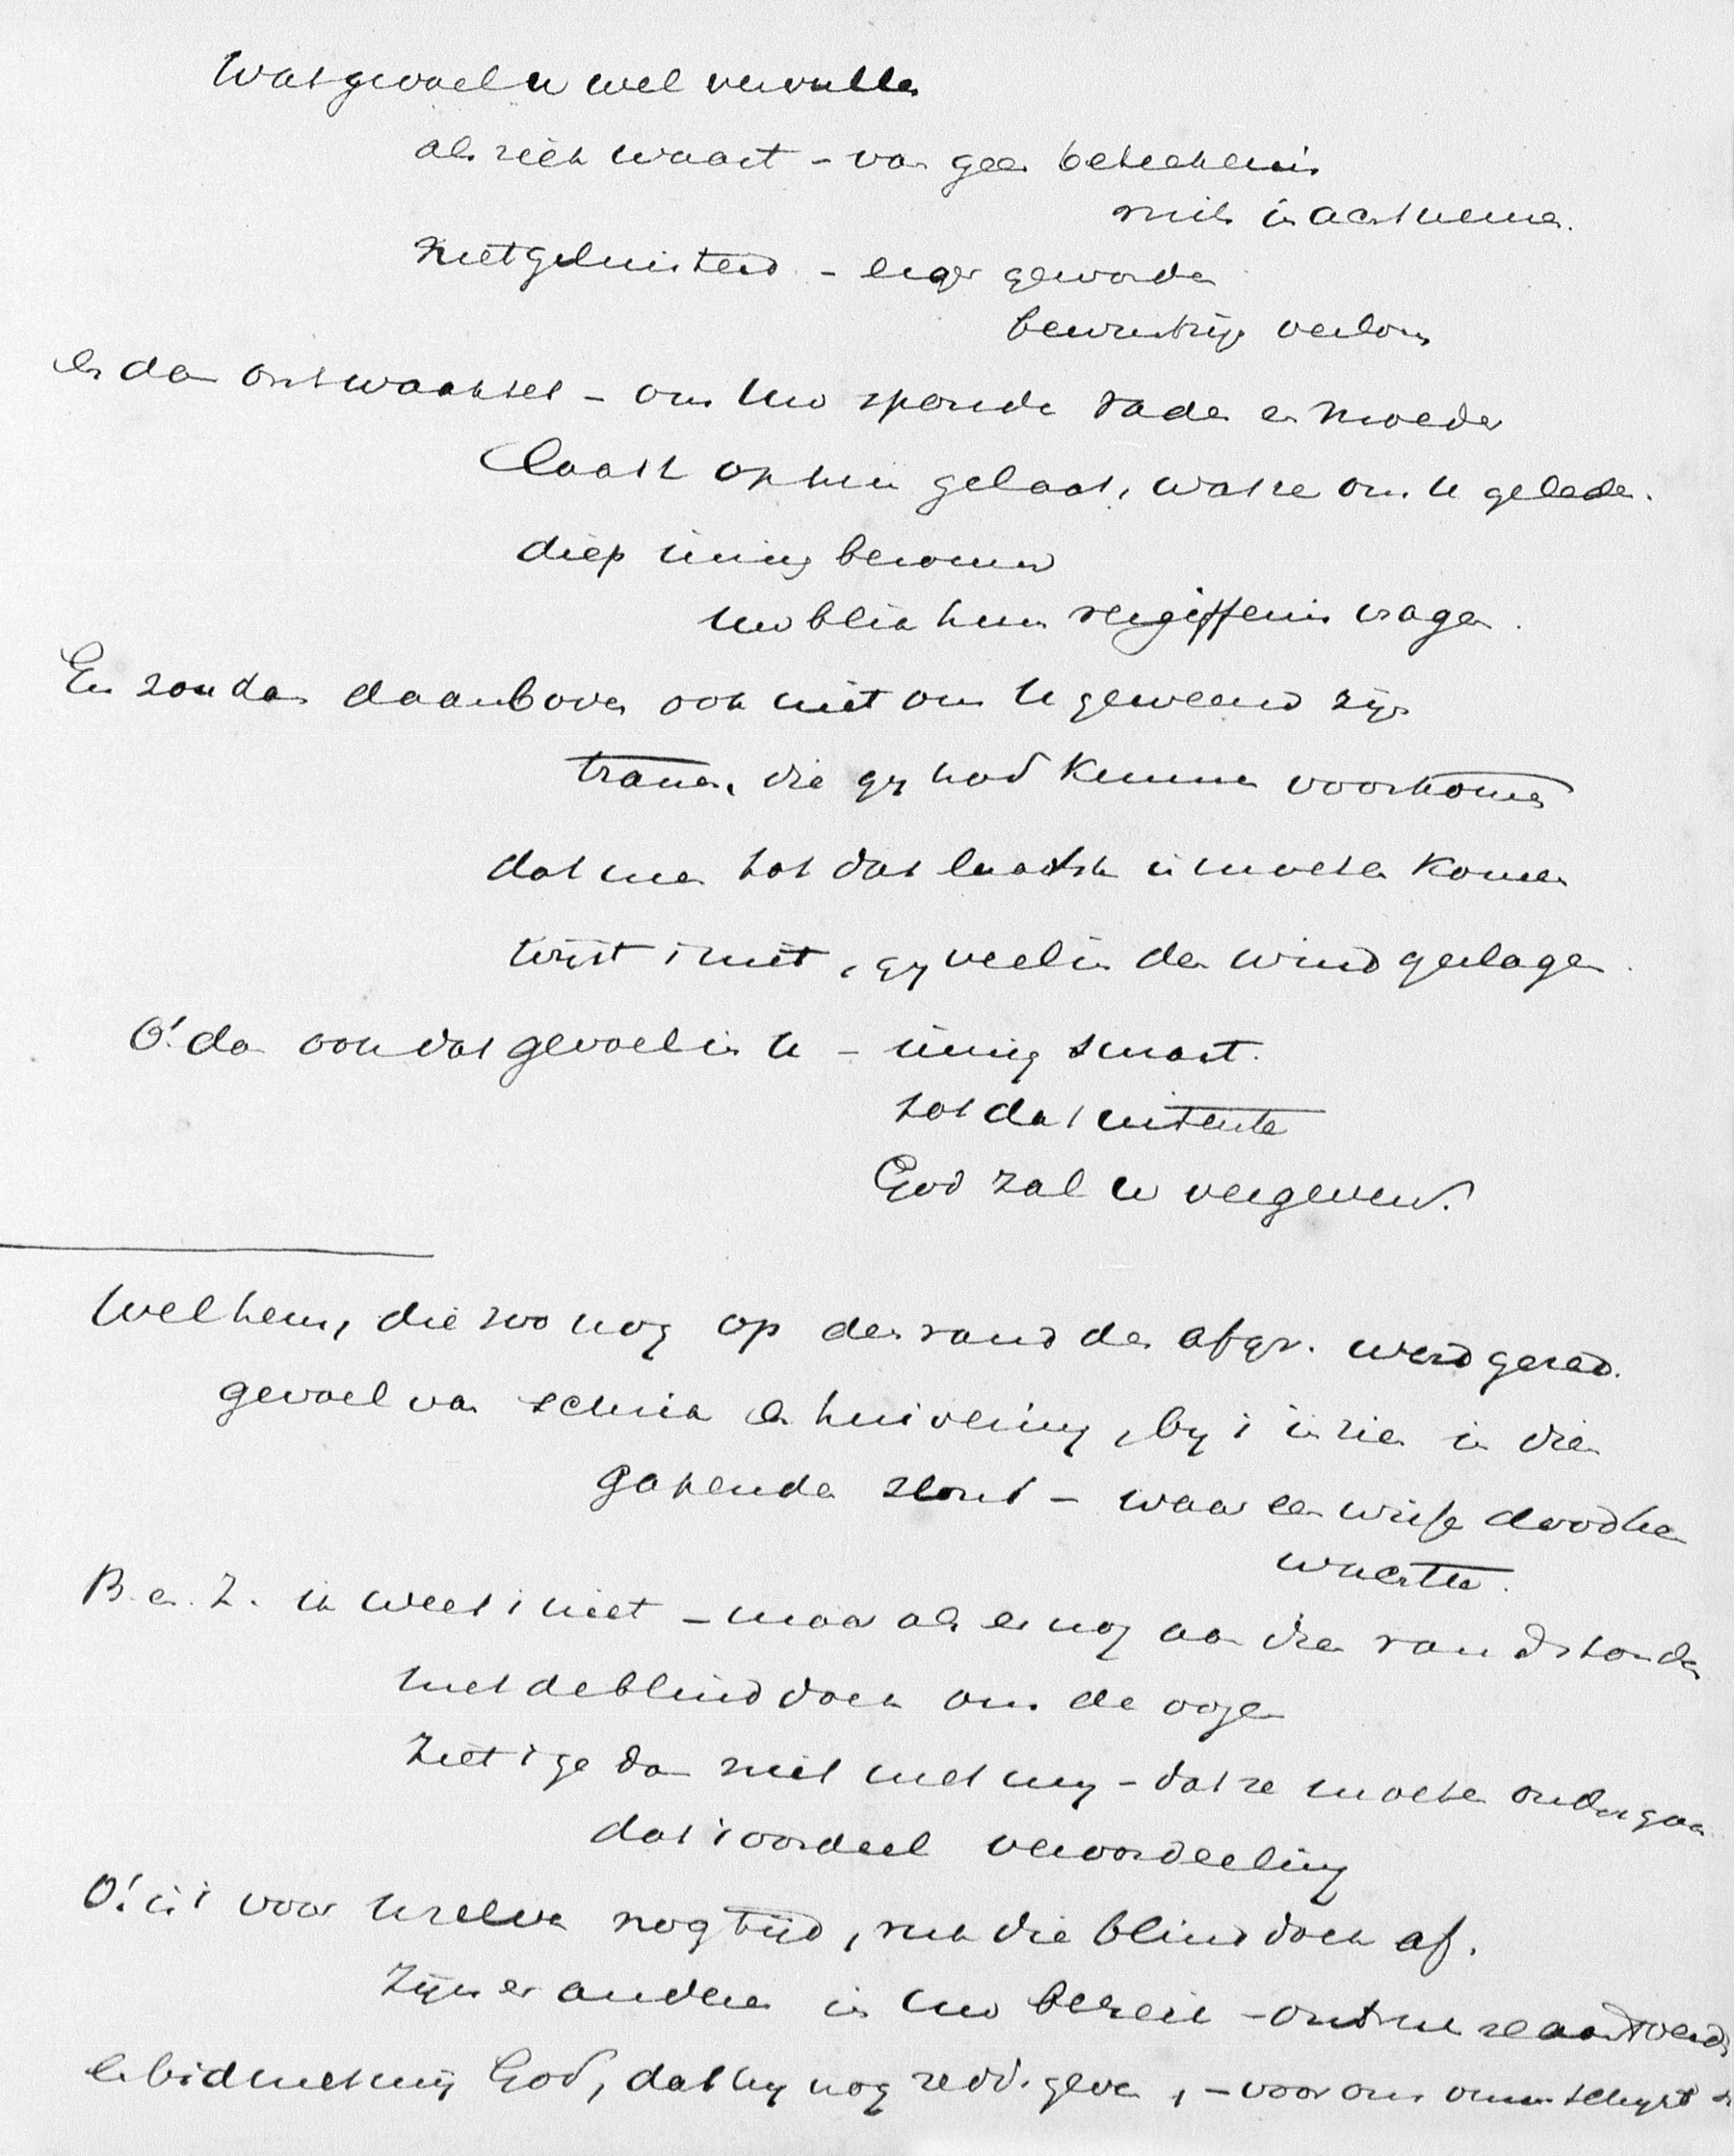 Wat gevoel u wel vervullen
als ziek waart - van geen beteekenis
niets in acht nemen.
Niet geluisterd - erger geworden
bewustzijn verloren
en dan ontwaaktet - om uw sponde vader en moeder
laast op hun gelaat, wat ze om U geleden.
diep innig berouw
uw blik hun vergiffenis vragen.
En zou dan daarboven ook niet om U geweend zijn
tranen, die gy had kunnen voorkomen
dat men tot dat laatste is moeten komen
wist 't niet, gy veel in den wind geslagen.
O! dan ook dat gevoel in U - innig smart.
tot dat uiterste
God zal u vergeven.
Wel hem, die zoo nog op den rand des afgr. werd gered.
gevoel van schrik en huivering, by 't inzien in dien
gapenden - waar een wisse dood hem
wachtte.
B. en Z. ik weet 't niet - maar als er nog aan dien rand stonden
met de blinddoek om de oogen
Ziet ge dan niet met my - dat ze moeten ondergaan
dat oordeel veroordeeling
O! is 't voor Uzelven nog tijd, ruk die blinddoek af.
Zijn er anderen in uw bereik -
en bid met mij God, dat hy nog redd. geven, - voor ons